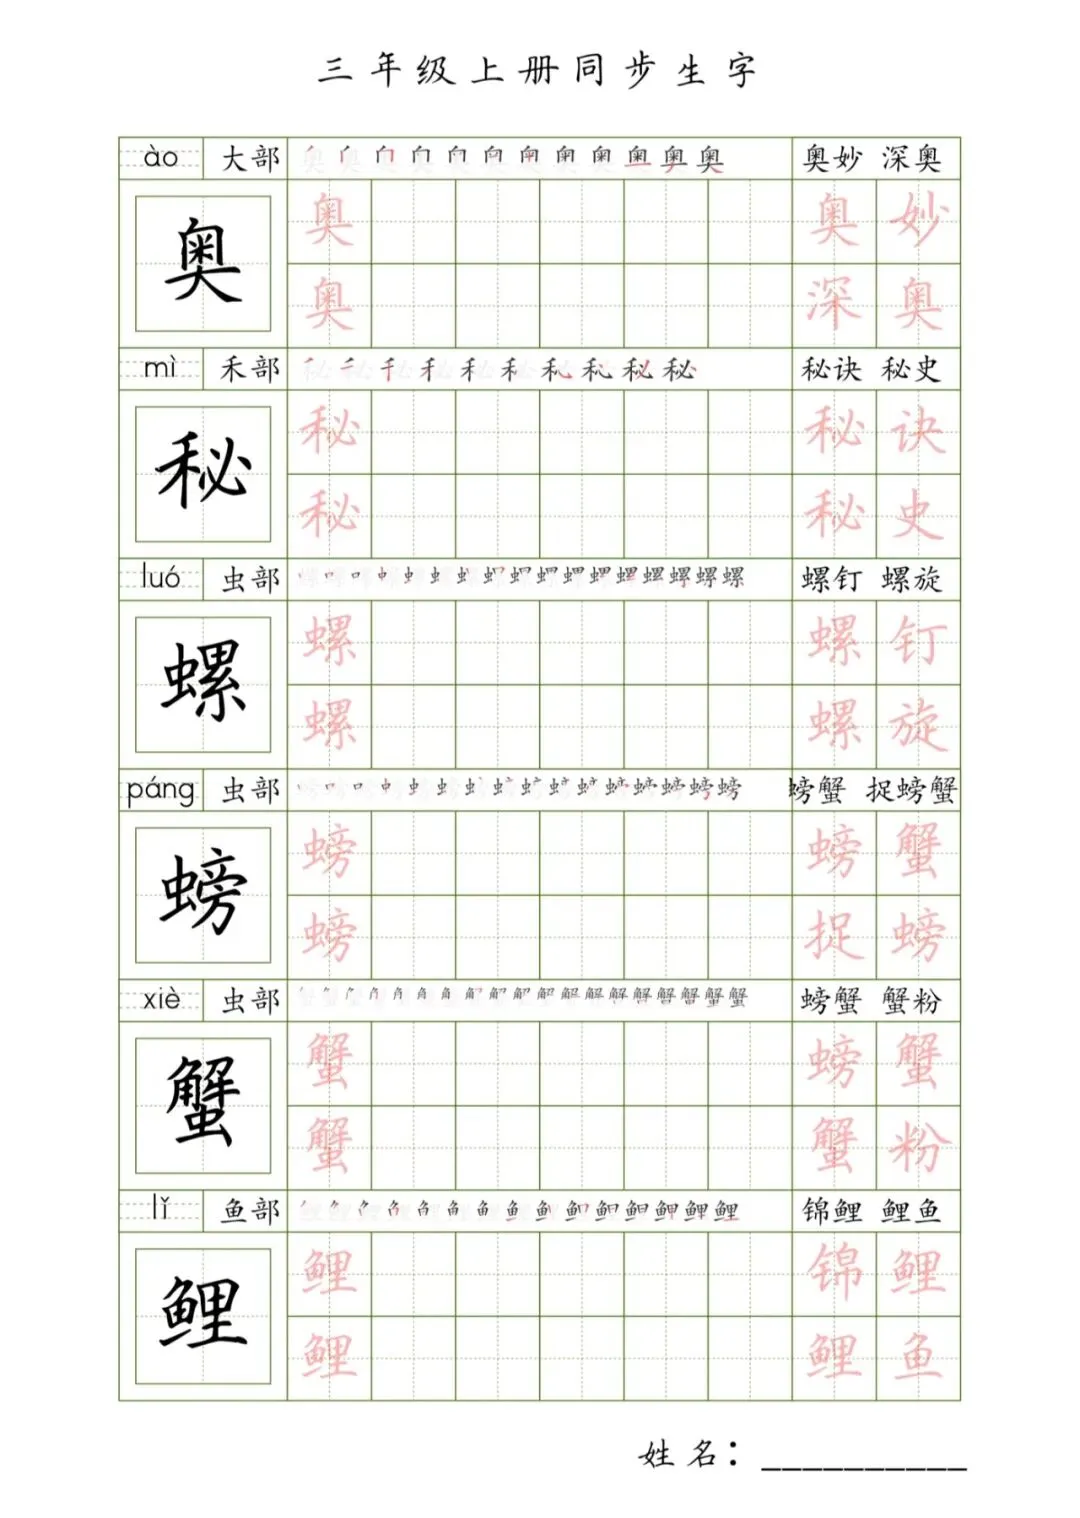 三年级上册同步生字
ào 大部 奥妙 深奥
奥 奥 奥妙
奥 深奥
mì 禾部 秘诀 秘史
秘 秘 秘诀
秘 秘史
luó 虫部 螺钉 螺旋
螺 螺 螺钉
螺 螺旋
páng 虫部 螃蟹 捉螃蟹
螃 螃 螃蟹
螃 捉螃
xiè 虫部 螃蟹 蟹粉
蟹 蟹 螃蟹
蟹 蟹粉
lǐ 鱼部 锦鲤 鲤鱼
鲤 鲤 锦鲤
鲤 鲤鱼
姓名：__________